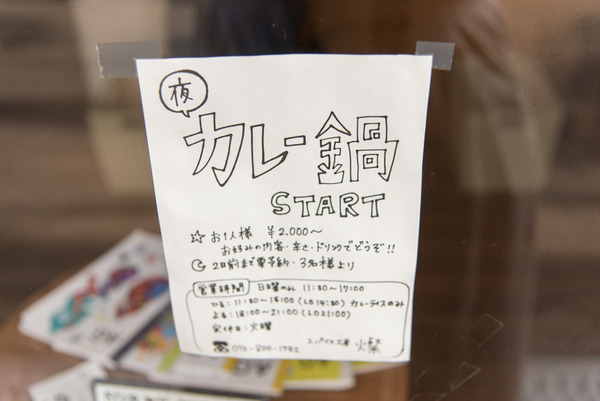 夜
カレー鍋
START
☆ お1人様 ¥2.000~
お好みの内容・辛さ・ドリンクでどうぞ!!
2日前まで要予約・3名様より
営業時間 日曜のみ 11:30~17:00
ひる:11:30~15:00(LO14:30) カレーライスのみ
よる:18:00~21:00(LO21:00)
定休日:火曜
スパイス工房 燦